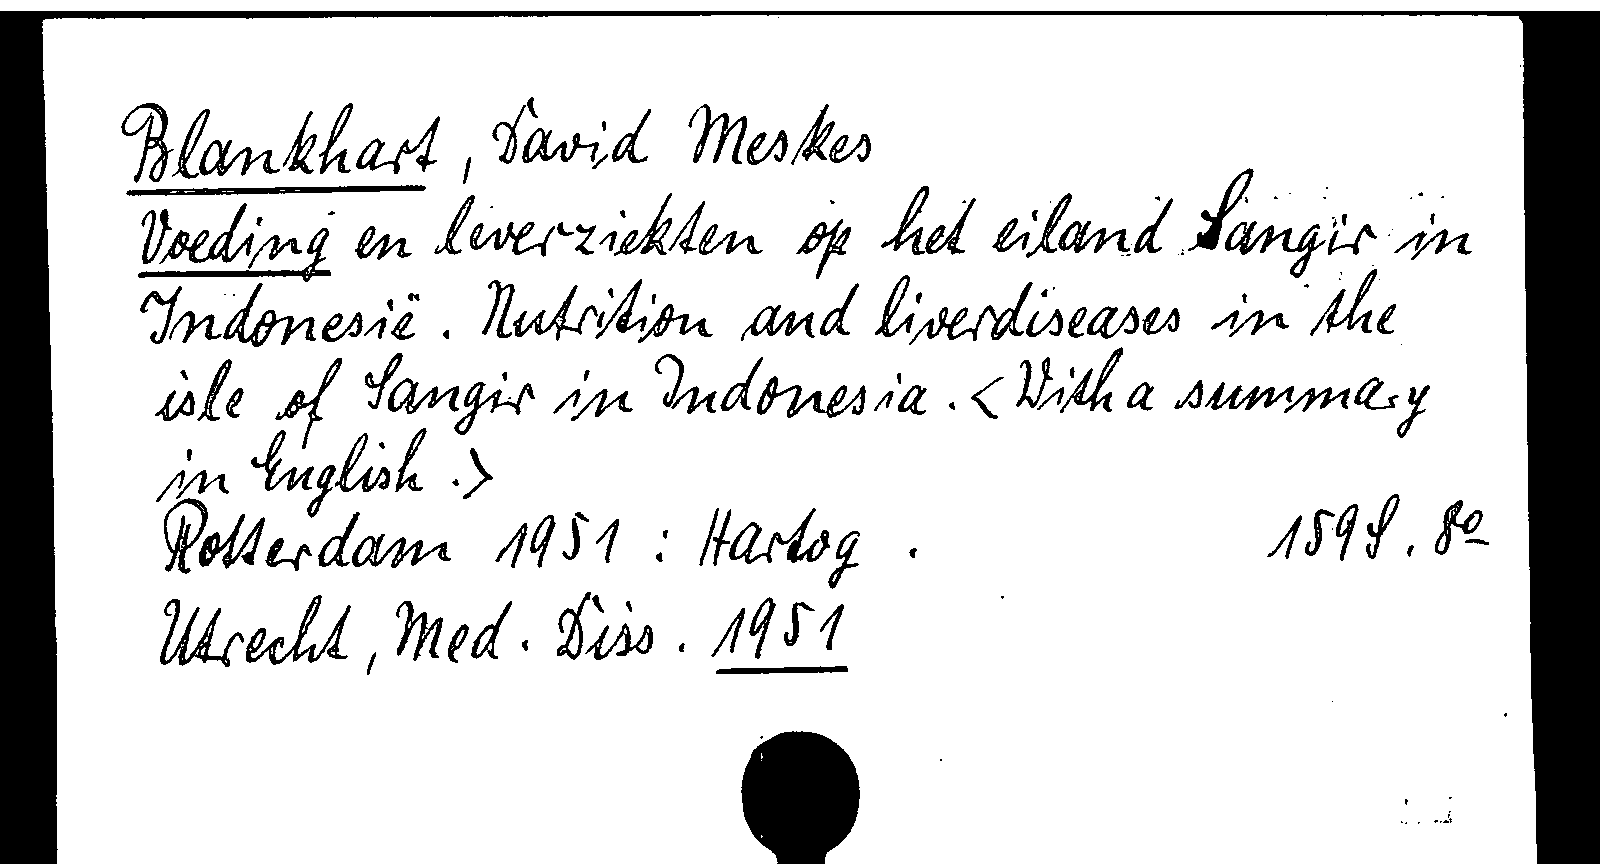 Blankhart, David Meskes
Voeding en leverziekten op het eiland Sangir in
Indonesië. Nutrition and liverdiseases in the
isle of Sangir in Indonesia. <With a summary
in English.>
Rotterdam 1951: Hartog. 159 S. 8º
Utrecht, Med. Diss. 1951